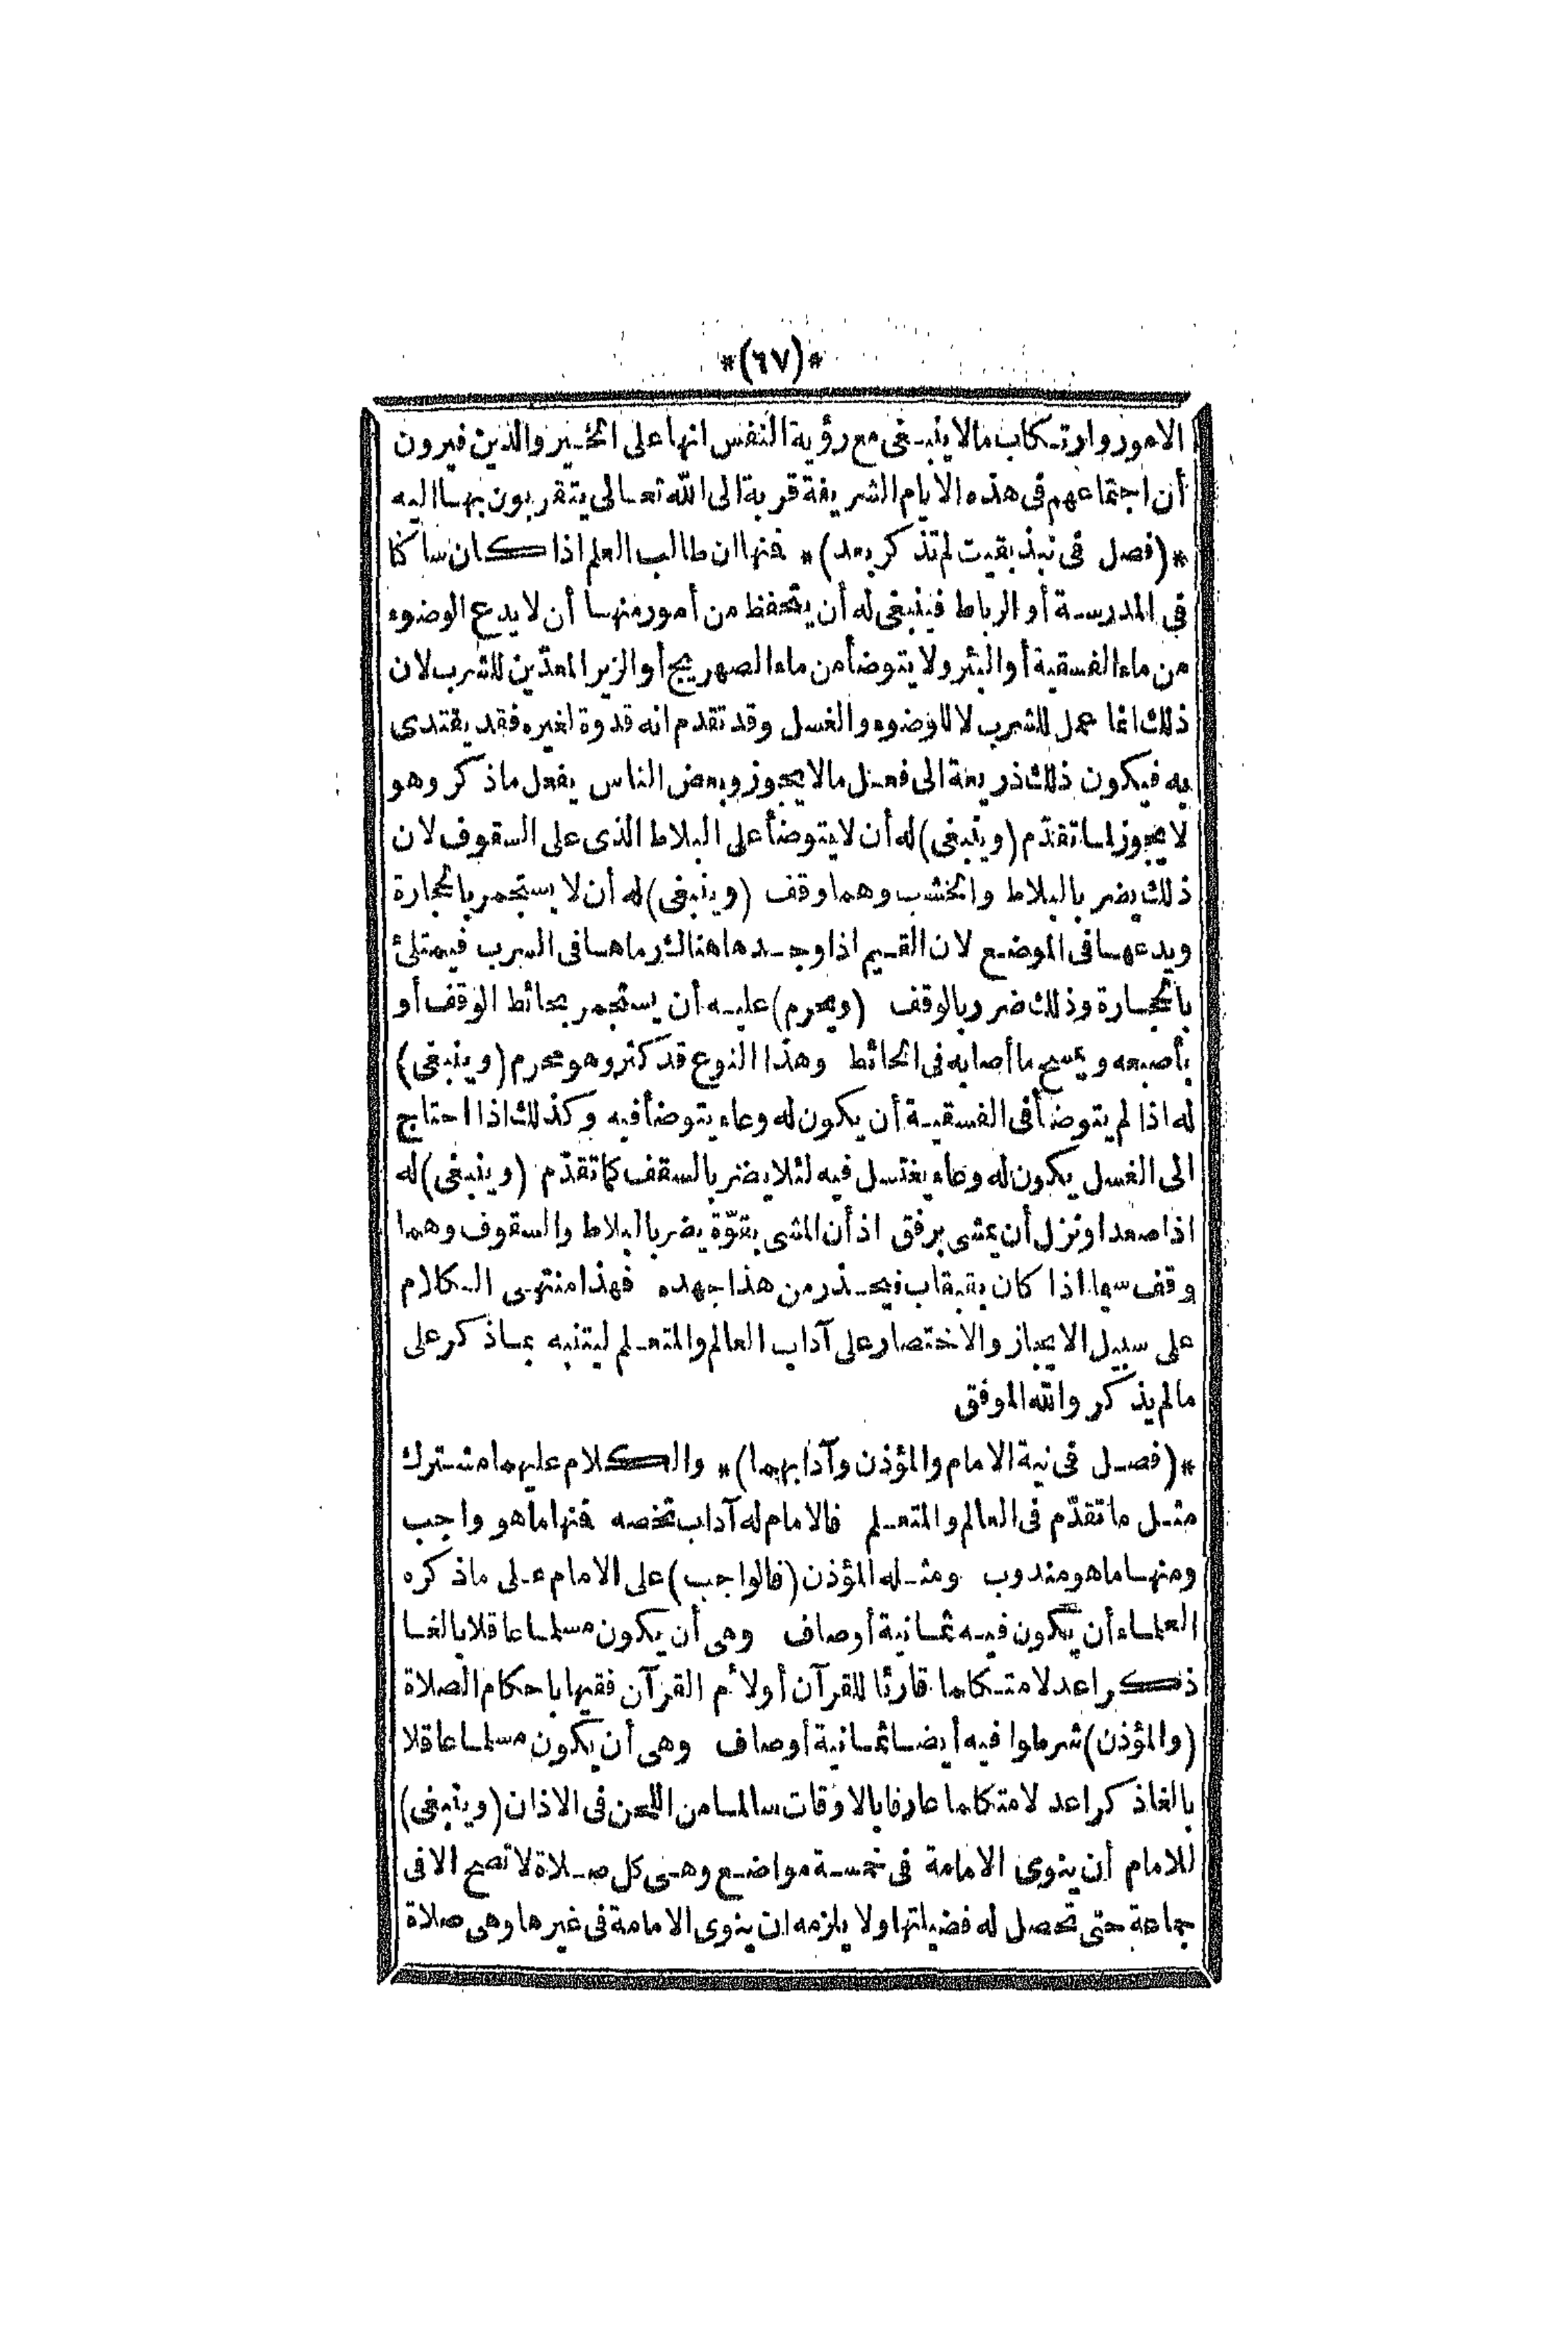 *(٦٧)*
الامور وارتكاب مالا ينبغى مع رؤية النفس انها على الخير والدين فيرون
أن اجتماعهم فى هذه الايام الشريفة قربة الى الله تعالى يتقربون بها اليه
*(فصل فى نبذ بقيت لم تذكر بعد)* فنها ان طالب العلم اذا كان ساكنا
فى المدرسة أو الرباط فينبغى له أن يتحفظ من أمور منها أن لا يدع الوضوء
من ماء الفسقية أو البئر ولا يتوضأ من ماء الصهريج أو الزير المعدّين للشرب لان
ذلك انما عمل للشرب لا للوضوء والغسل وقد تقدم انه قدوة لغيره فقد يقتدى
به فيكون ذلك ذريعة الى فعل مالا يجوز وبعض الناس يفعل ماذكر وهو
لا يجوز لما تقدّم (وينبغى) له أن لا يتوضأ على البلاط الذى على السقوف لان
ذلك يضر بالبلاط والخشب وهما وقف (وينبغى) له أن لا يستجمر بالحجارة
ويدعها فى الموضع لان القيم اذا وجدها هنالك رماها فى السرب فيمتلئ
بالحجارة وذلك ضرر بالوقف (ويحرم) عليه أن يستجمر بحائط الوقف أو
بأصبعه ويمسح ما أصابه فى الحائط وهذا النوع قد كثر وهو محرم (وينبغى)
له اذا لم يتوضأ فى الفسقية أن يكون له وعاء يتوضأ فيه وكذلك اذا احتاج
الى الغسل يكون له وعاء يغتسل فيه لئلا يضر بالسقف كما تقدّم (وينبغى) له
اذا صعد او نزل أن يمشى برفق اذ أن المشى بقوّة يضر بالبلاط والسقوف وهما
وقف سيما اذا كان بقبقاب فيحذر من هذا جهده فهذا منتهى الكلام
على سبيل الايجاز والاختصار على آداب العالم والمتعلم ليتنبه بما ذكر على
مالم يذكر والله الموفق
*(فصل فى نية الامام والمؤذن وآدابهما)* والكلام عليهما مشترك
مثل ما تقدّم فى العالم والمتعلم فالامام له آداب تخصه فنها ما هو واجب
ومنها ما هو مندوب ومثله المؤذن (فالواجب) على الامام على ماذكره
العلماء أن يكون فيه ثمانية أوصاف وهى أن يكون مسلما عاقلا بالغا
ذكرا عدلا متكلما قارئا للقرآن أولأم القرآن فقيها باحكام الصلاة
(والمؤذن) شرطوا فيه أيضا ثمانية أوصاف وهى أن يكون مسلما عاقلا
بالغا ذكرا عدلا متكلما عارفا بالاوقات سالما من اللحن فى الاذان (وينبغى)
للامام أن ينوى الامامة فى خمسة مواضع وهى كل صلاة لا تصح الا فى
جماعة حتى تحصل له فضيلتها ولا يلزمه ان ينوى الامامة فى غيرها وهى صلاة